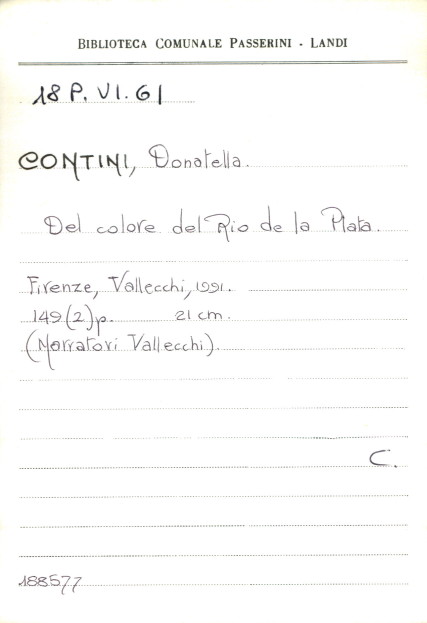 BIBLIOTECA COMUNALE PASSERINI - LANDI
18 P. VI. 61
CONTINI, Donatella.
Del colore del Rio de la Plata.
Firenze, Vallecchi, 1991.
149(2)p. 21 cm.
(Narratori Vallecchi).
C.
188577